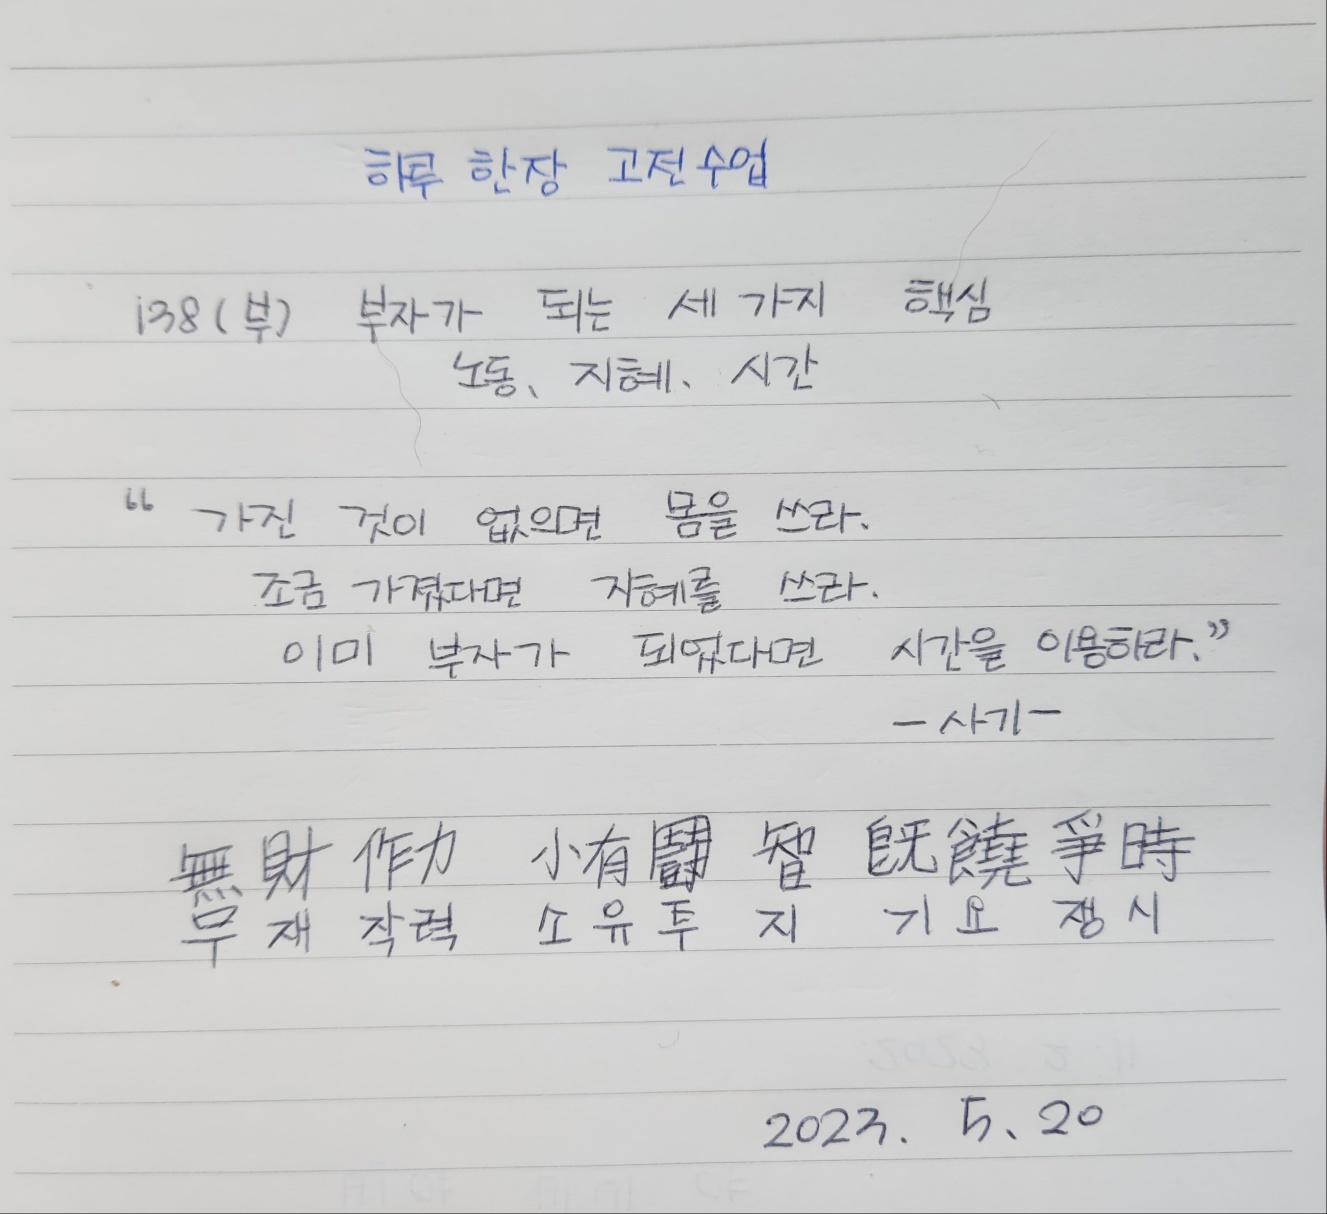 하루 한장 고전수업
138(부) 부자가 되는 세 가지 핵심
노동、지혜、시간
“ 가진 것이 없으면 몸을 쓰라.
조금 가졌다면 지혜를 쓰라.
이미 부자가 되었다면 시간을 이용하라.”
-사기-
無財作力 小有鬪智 旣饒爭時
무재작력 소유투지 기요쟁시
2023. 5、20